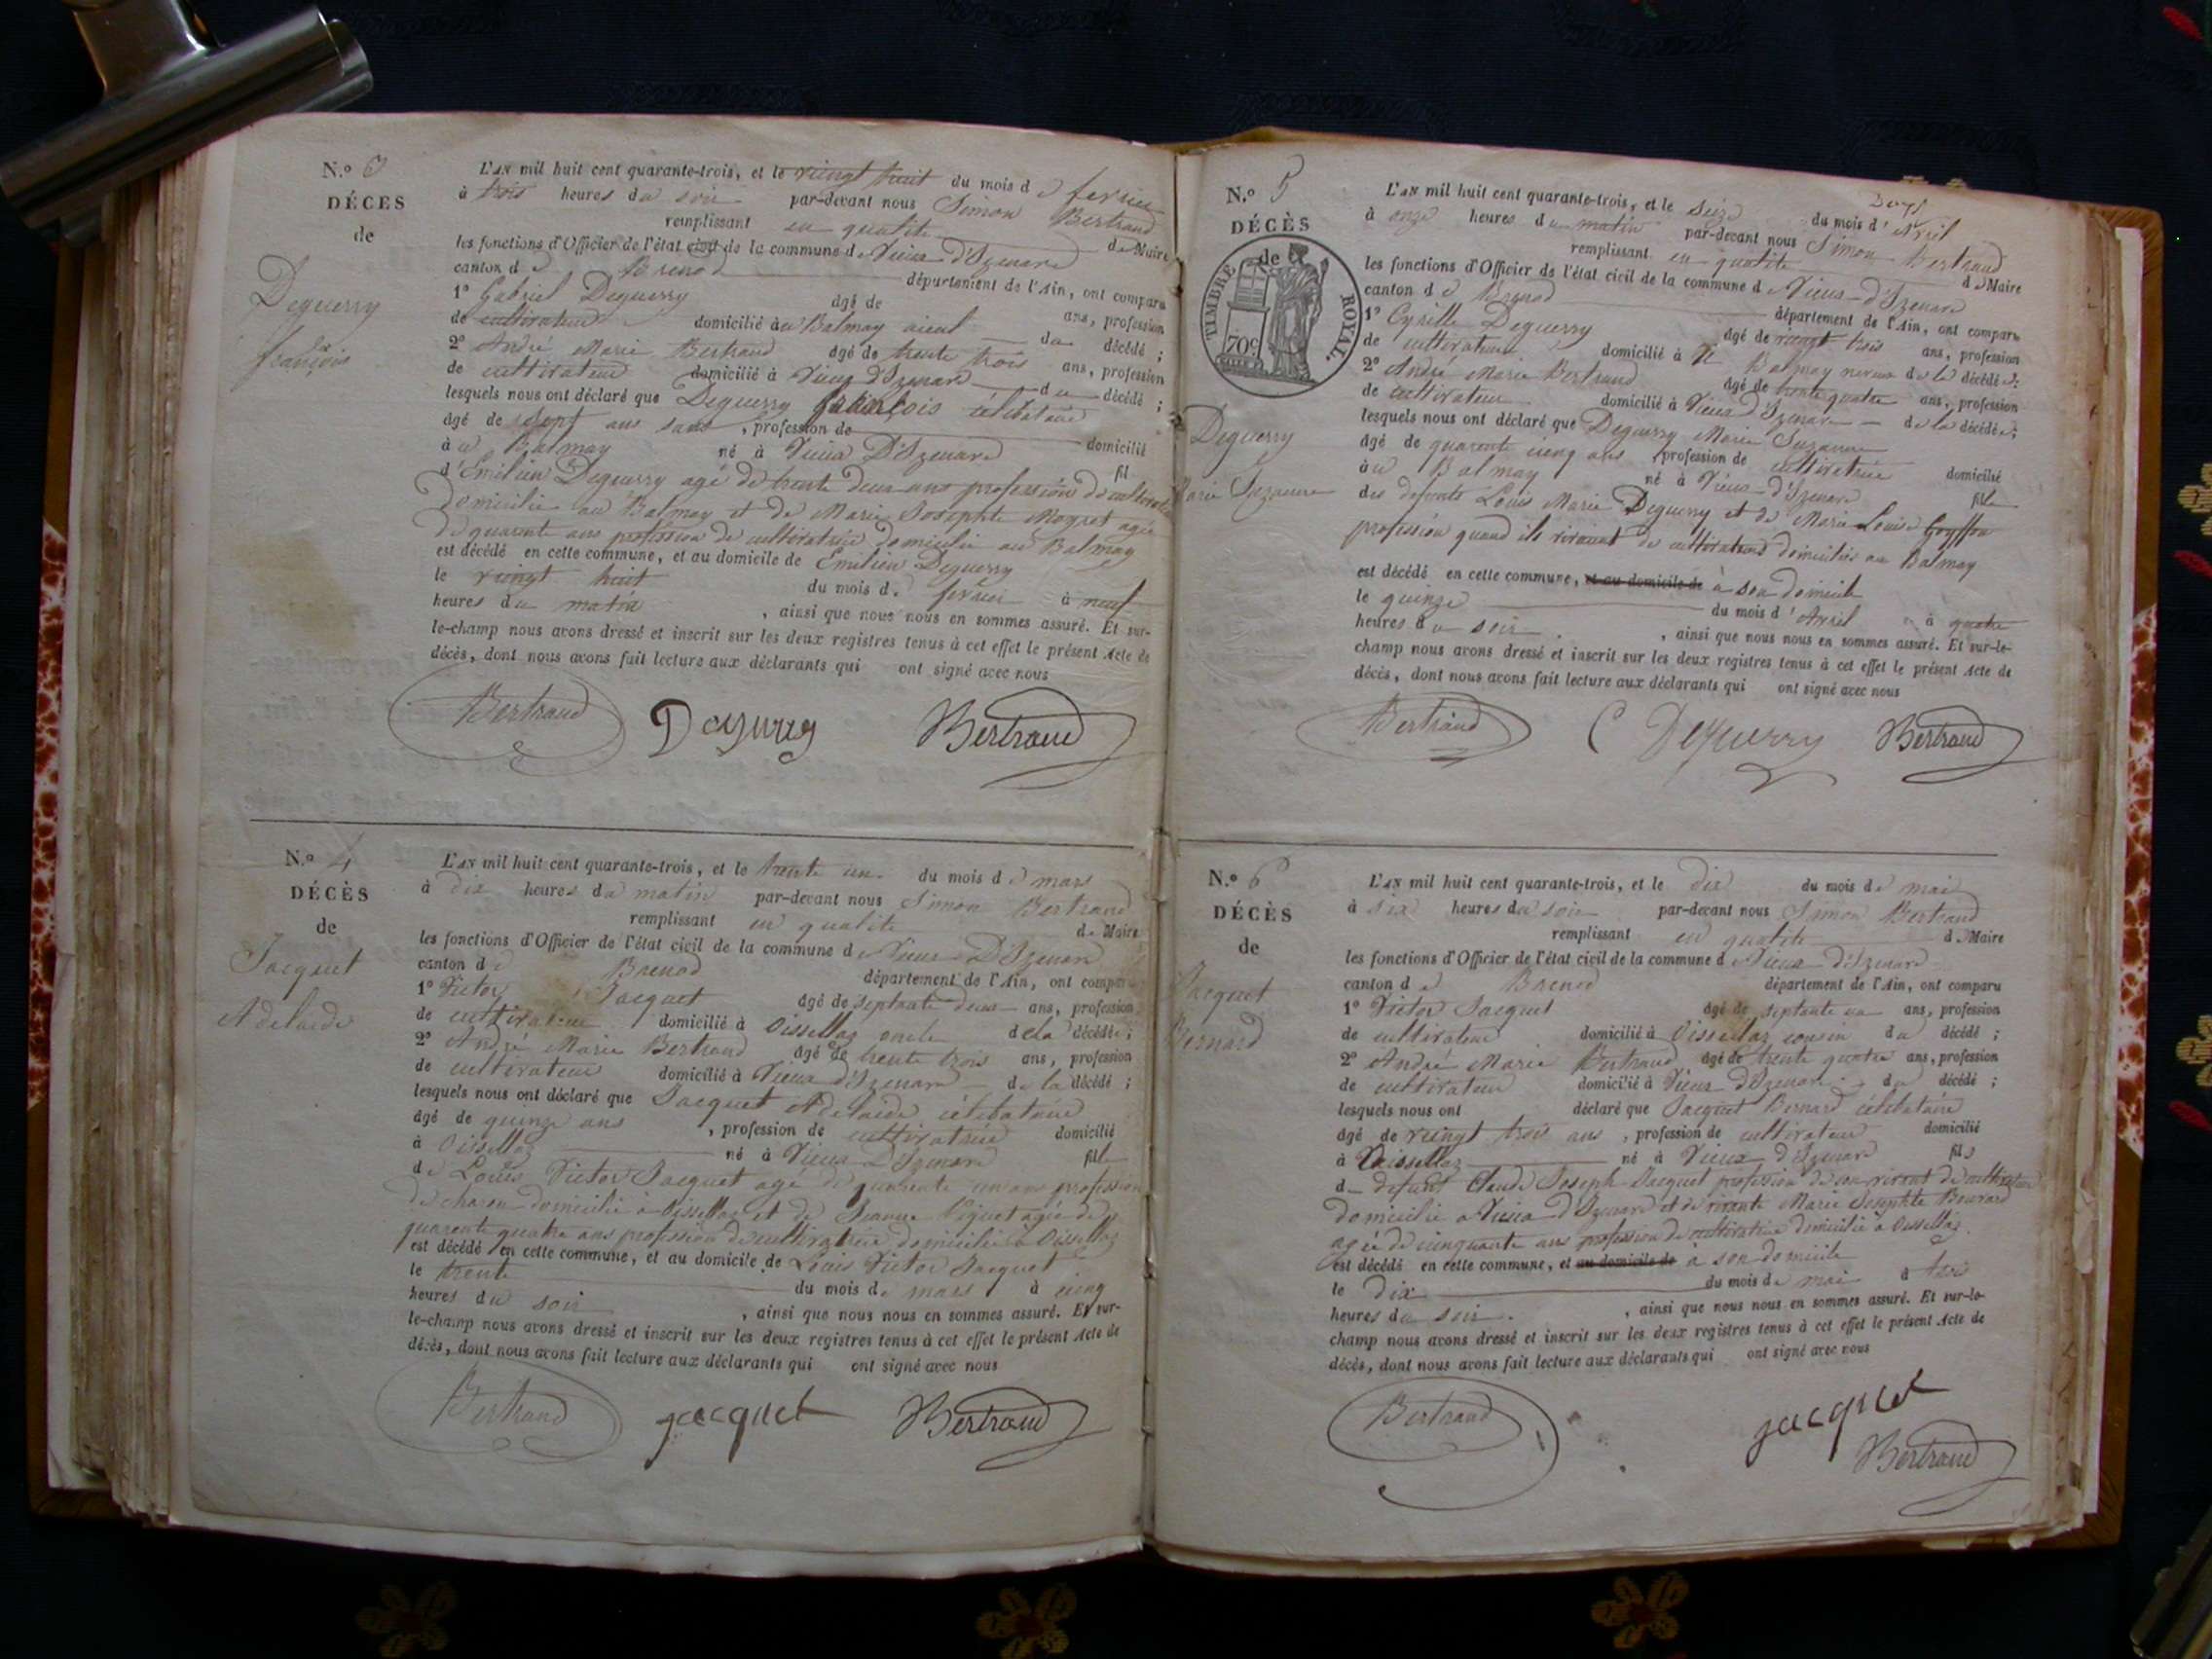 N.o 3
DÉCES
de
Deguerry
françois
L'AN mil huit cent quarante-trois, et le vingt huit du mois d e fevrier
à trois heures du soir par-devant nous Simon Bertrand
remplissant en qualité de Maire
les fonctions d'Officier de l'état civil de la commune de Vieux d'Izenave
canton d e Brenod département de l'Ain, ont comparu
1o Gabriel Deguerry âgé de ans, profession
de cultivateur domicilié au Balmay aieul du décédé ;
2o André Marie Bertrand âgé de trente trois ans, profession
de cultivateur domicilié à Vieux d'Izenave du décédé ;
lesquels nous ont déclaré que Deguerry françois célibataire
âgé de sept ans sans , profession de domicilié
à u Balmay né à Vieux D'Izenave fil
d'Emilien Deguerry agé de trente deux ans profession de cultivateur
domicilié au Balmay et de Marie Josephte Moyret agée
de quarante ans profession de cultivatrice domicilié au Balmay
est décédé en cette commune, et au domicile de Emilien Deguerry
le vingt huit du mois de fevrier à neuf
heures du matin , ainsi que nous nous en sommes assuré. Et sur-
le-champ nous avons dressé et inscrit sur les deux registres tenus à cet effet le présent Acte de
décès, dont nous avons fait lecture aux déclarants qui ont signé avec nous
Bertrand Deguerry Bertrand
N.o 4
DÉCÈS
de
Jacquet
Adelaide
L'AN mil huit cent quarante-trois, et le trente un du mois d e mars
à dix heures du matin par-devant nous Simon Bertrand
remplissant en qualité de Maire
les fonctions d'Officier de l'état civil de la commune de Vieux D'Izenave
canton d e Brenod département de l'Ain, ont comparu
1o Victor Jacquet âgé de septante deux ans, profession
de cultivateur domicilié à Oissellaz oncle de la décédée ;
2o André Marie Bertrand âgé de trente trois ans, profession
de cultivateur domicilié à Vieux d'Izenave de la décédé ;
lesquels nous ont déclaré que Jacquet Adelaide célibataire
âgé de quinze ans , profession de cultivatrice domicilié
à Oissellaz né à Vieux D'Izenave fille
de Louis Victor Jacquet agé de quarante un ans profession
de charon domicilié à Oissellaz et de Jeanne agée de
quarante quatre ans profession de cultivatrice domicilié à Oissellaz
est décédé en cette commune, et au domicile de Louis Victor Jacquet
le trente du mois de mars à cinq
heures du soir , ainsi que nous nous en sommes assuré. Et sur-
le-champ nous avons dressé et inscrit sur les deux registres tenus à cet effet le présent Acte de
décès, dont nous avons fait lecture aux déclarants qui ont signé avec nous
Bertrand jacquet Bertrand
N.o 5
DÉCÈS
de
TIMBRE ROYAL.
70c
Deguerry
Marie Suzanne
L'AN mil huit cent quarante-trois, et le seize du mois d' Avril
à onze heures du matin par-devant nous Simon Bertrand
remplissant en qualité de Maire
les fonctions d'Officier de l'état civil de la commune de Vieux-d'Izenave
canton d e Brenod département de l'Ain, ont comparu
1o Cyrille Deguerry âgé de vingt trois ans, profession
de cultivateur domicilié à u Balmay neveux de la décédée ;
2o André Marie Bertrand âgé de trente quatre ans, profession
de cultivateur domicilié à Vieux d'Izenave de la décédée ;
lesquels nous ont déclaré que Deguerry Marie Suzanne
âgé de quarante cinq ans , profession de cultivatrice domicilié
à u Balmay né à Vieux-d'Izenave fille
des defunts Louis Marie Deguerry et de Marie Louise Goyffon
profession quand ils vivaient de cultivateurs domiciliés au Balmay
est décédé en cette commune, et au domicile de à son domicile
le quinze du mois d' Avril à quatre
heures du soir , ainsi que nous nous en sommes assuré. Et sur-le-
champ nous avons dressé et inscrit sur les deux registres tenus à cet effet le présent Acte de
décès, dont nous avons fait lecture aux déclarants qui ont signé avec nous
Bertrand C Deguerry Bertrand
N.o 6
DÉCÈS
de
Jacquet
Bernard
L'AN mil huit cent quarante-trois, et le dix du mois de mai
à six heures du soir par-devant nous Simon Bertrand
remplissant en qualité de Maire
les fonctions d'Officier de l'état civil de la commune de Vieux d'Izenave
canton d e Brenod département de l'Ain, ont comparu
1o Victor Jacquet âgé de septante un ans, profession
de cultivateur domicilié à Oissellaz cousin du décédé ;
2o André Marie Bertrand âgé de trente quatre ans, profession
de cultivateur domicilié à Vieux d'Izenave du décédé ;
lesquels nous ont déclaré que Jacquet Bernard célibataire
âgé de vingt trois ans , profession de cultivateur domicilié
à Oissellaz né à Vieux d'Izenave fils
de defunt Claude Joseph Jacquet profession de son vivant de cultivateur
domicilié à Vieux d'Izenave et de vivante Marie Josephte Bouvard
agée de cinquante ans profession de cultivatrice domicilié à Oissellaz
est décédé en cette commune, et au domicile de à son domicile
le dix du mois de mai à
heures du soir , ainsi que nous nous en sommes assuré. Et sur-le-
champ nous avons dressé et inscrit sur les deux registres tenus à cet effet le présent Acte de
décès, dont nous avons fait lecture aux déclarants qui ont signé avec nous
Bertrand jacquet
Bertrand